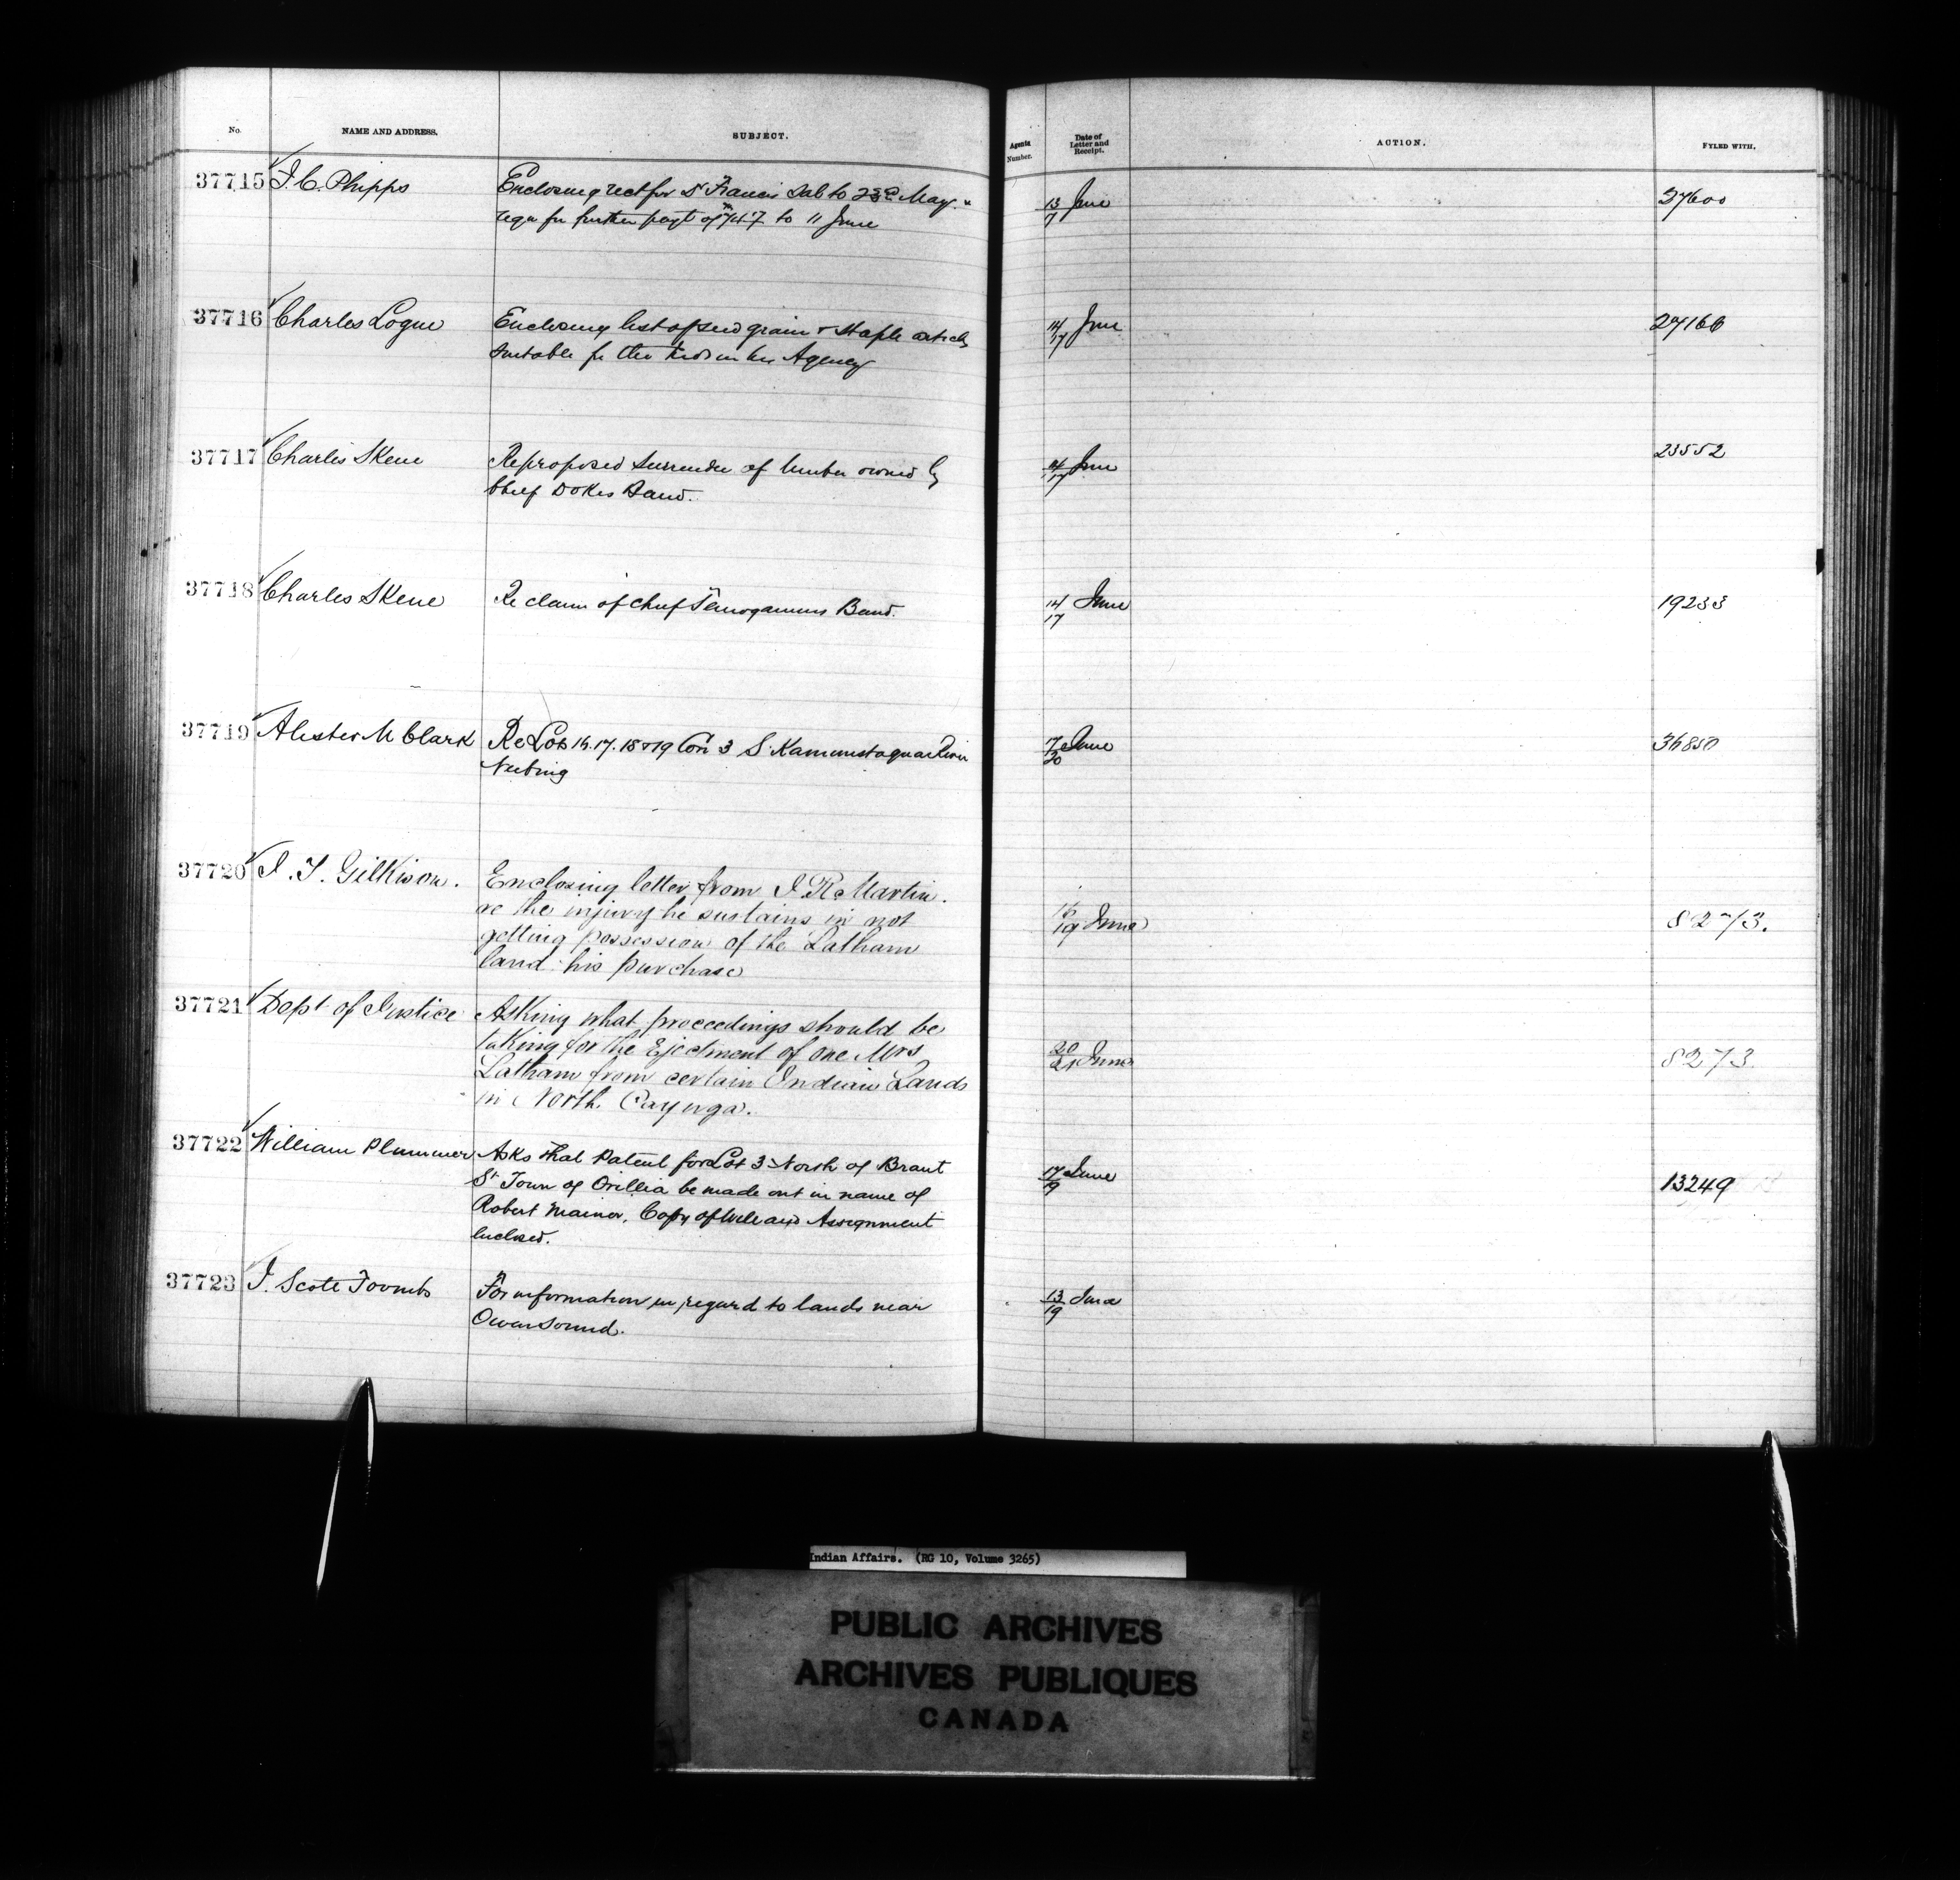 No. NAME AND ADDRESS. SUBJECT. Agents Number. Date of Letter and Receipt. ACTION. FYLED WITH.
37715 J. C. Phipps Enclosing rect for Dr Francis Sal to 23rd May 13/7 June 37600
requ for further payt of to 11 June
37716 Charles Logue Enclosing list of seed grain & staple articles 14/17 June 27166
suitable for the Inds in his Agency
37717 Charles Skene Re proposed surrender of timber owned by 14/17 June 23552
Chief Dokis Band.
37718 Charles Skene Re claim of chief Temogamins Band. 14/17 June 19233
37719 Alister M Clark Re Lots 16. 17. 18 & 19 Con 3 S. Kaministaquia River 17/20 June 36850
Neebing
37720 J. T. Gilkison. Enclosing letter from J R Martin.
re the injury he sustains in not 16/19 June 8273.
getting possession of the Latham
land: his purchase
37721 Dept of Justice Asking what proceedings should be
taking for the Ejectment of one Mrs 20/21 June 8273.
Latham from certain Indian Lands
in North Cayuga.
37722 William Plummer Asks that Patent for Lot 3 North of Brant
St Town of Orillia be made out in name of 17/19 June 13249
Robert Mainer. Copy of Will and Assignment
enclosed.
37723 J. Scott Toombs For information in regard to lands near 13/19 June
Owen Sound.
Indian Affairs. (RG 10, Volume 3265)
PUBLIC ARCHIVES
ARCHIVES PUBLIQUES
CANADA